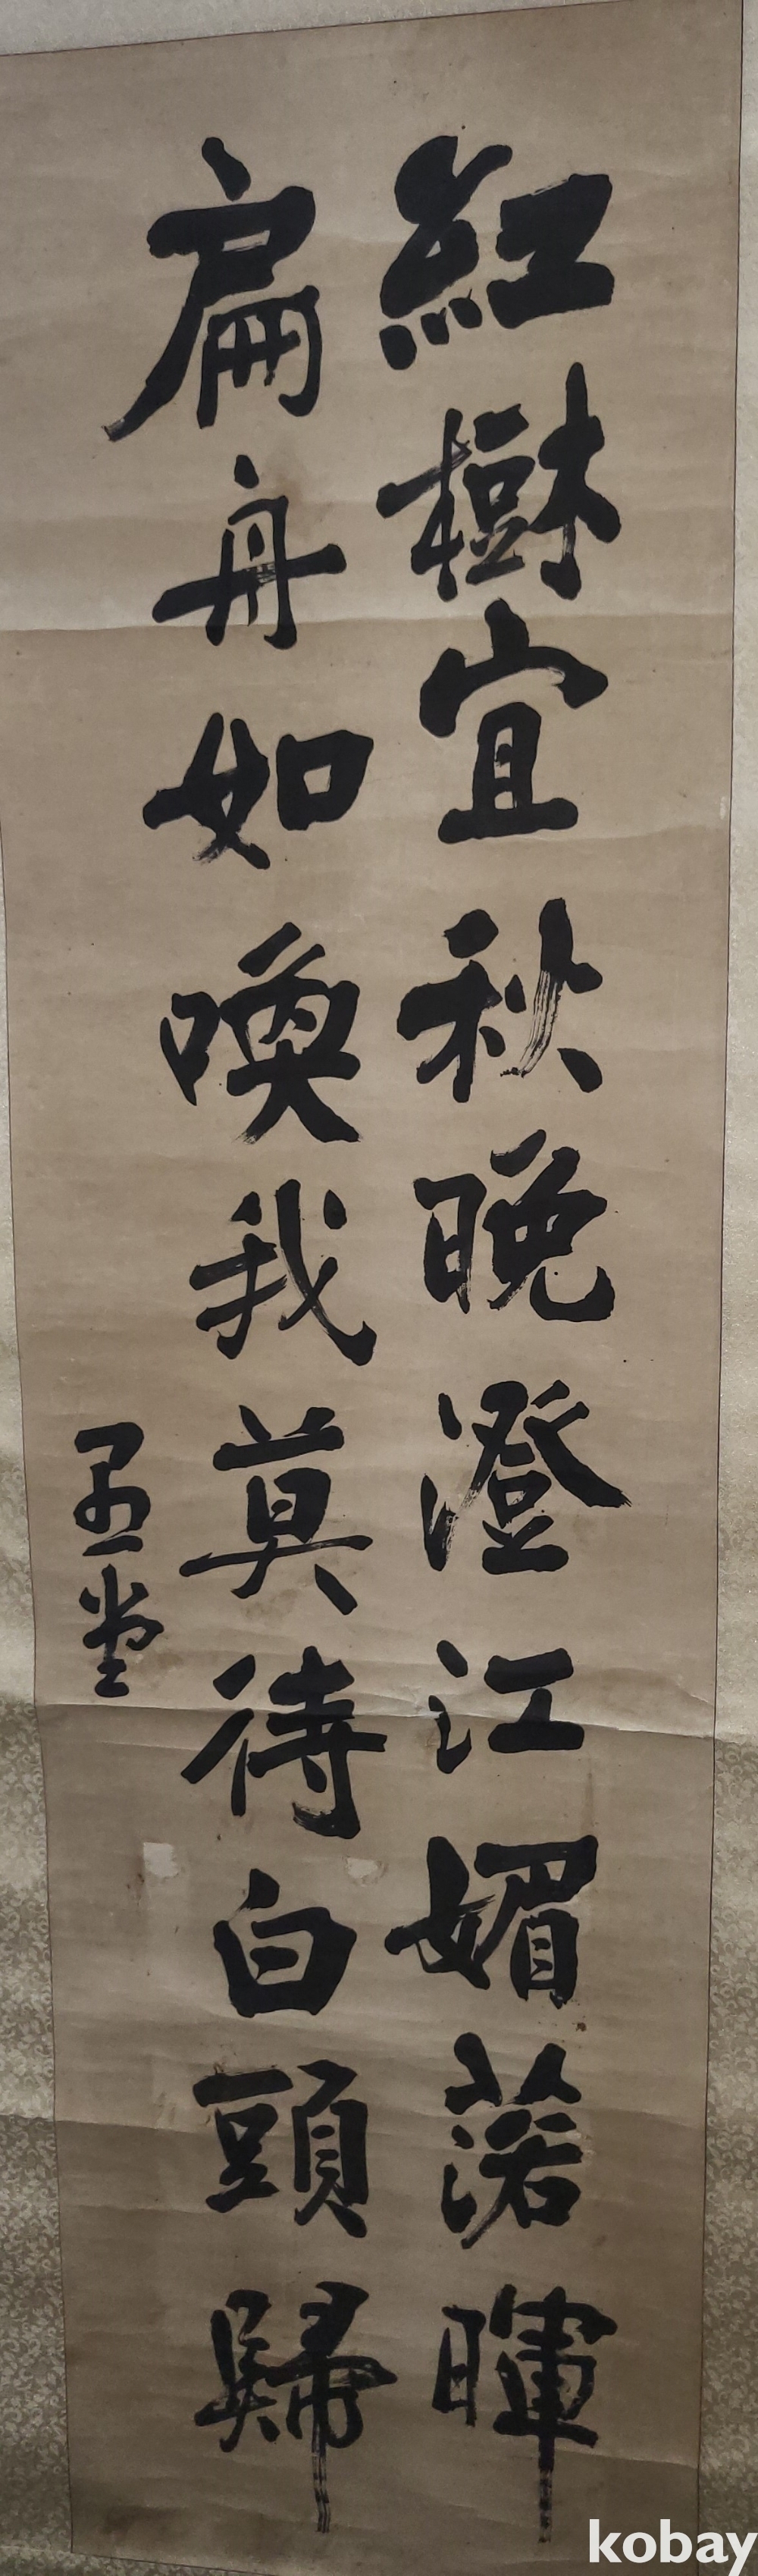 紅樹宜秋晚澄江媚落暉
扁舟如喚我莫待白頭歸
kobay